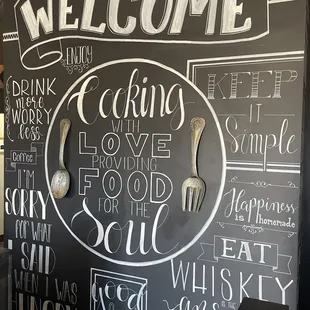 WELCOME
ENJOY
DRINK
more
WORRY
less
Coffee
I'M
SORRY
FOR WHAT
I
SAID
WHEN I WAS
HUNGRY
Cooking
WITH
LOVE
PROVIDING
FOOD
FOR THE
Soul
KEEP
IT
Simple
Happiness
IS homemade
EAT
Good
WHISKEY
IS THE